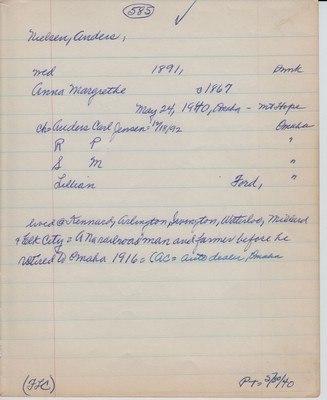 585
Nielsen, Anders,
wed 1891, Dmrk
Anna Margrethe 1867
May 24, 1940, Omaha - Mt Hope
ch Anders Carl Jensen = 12/18/92 Omaha
R P "
S M "
Lillian Ford, "
lived @ Kennard, Arlington, Irvington, Waterloo, Millard
& Elk City = A Na railroad man and farmer before he
retired to Omaha 1916 = (AC = auto dealer, Omaha
(FLC) Pt = 5/30/40